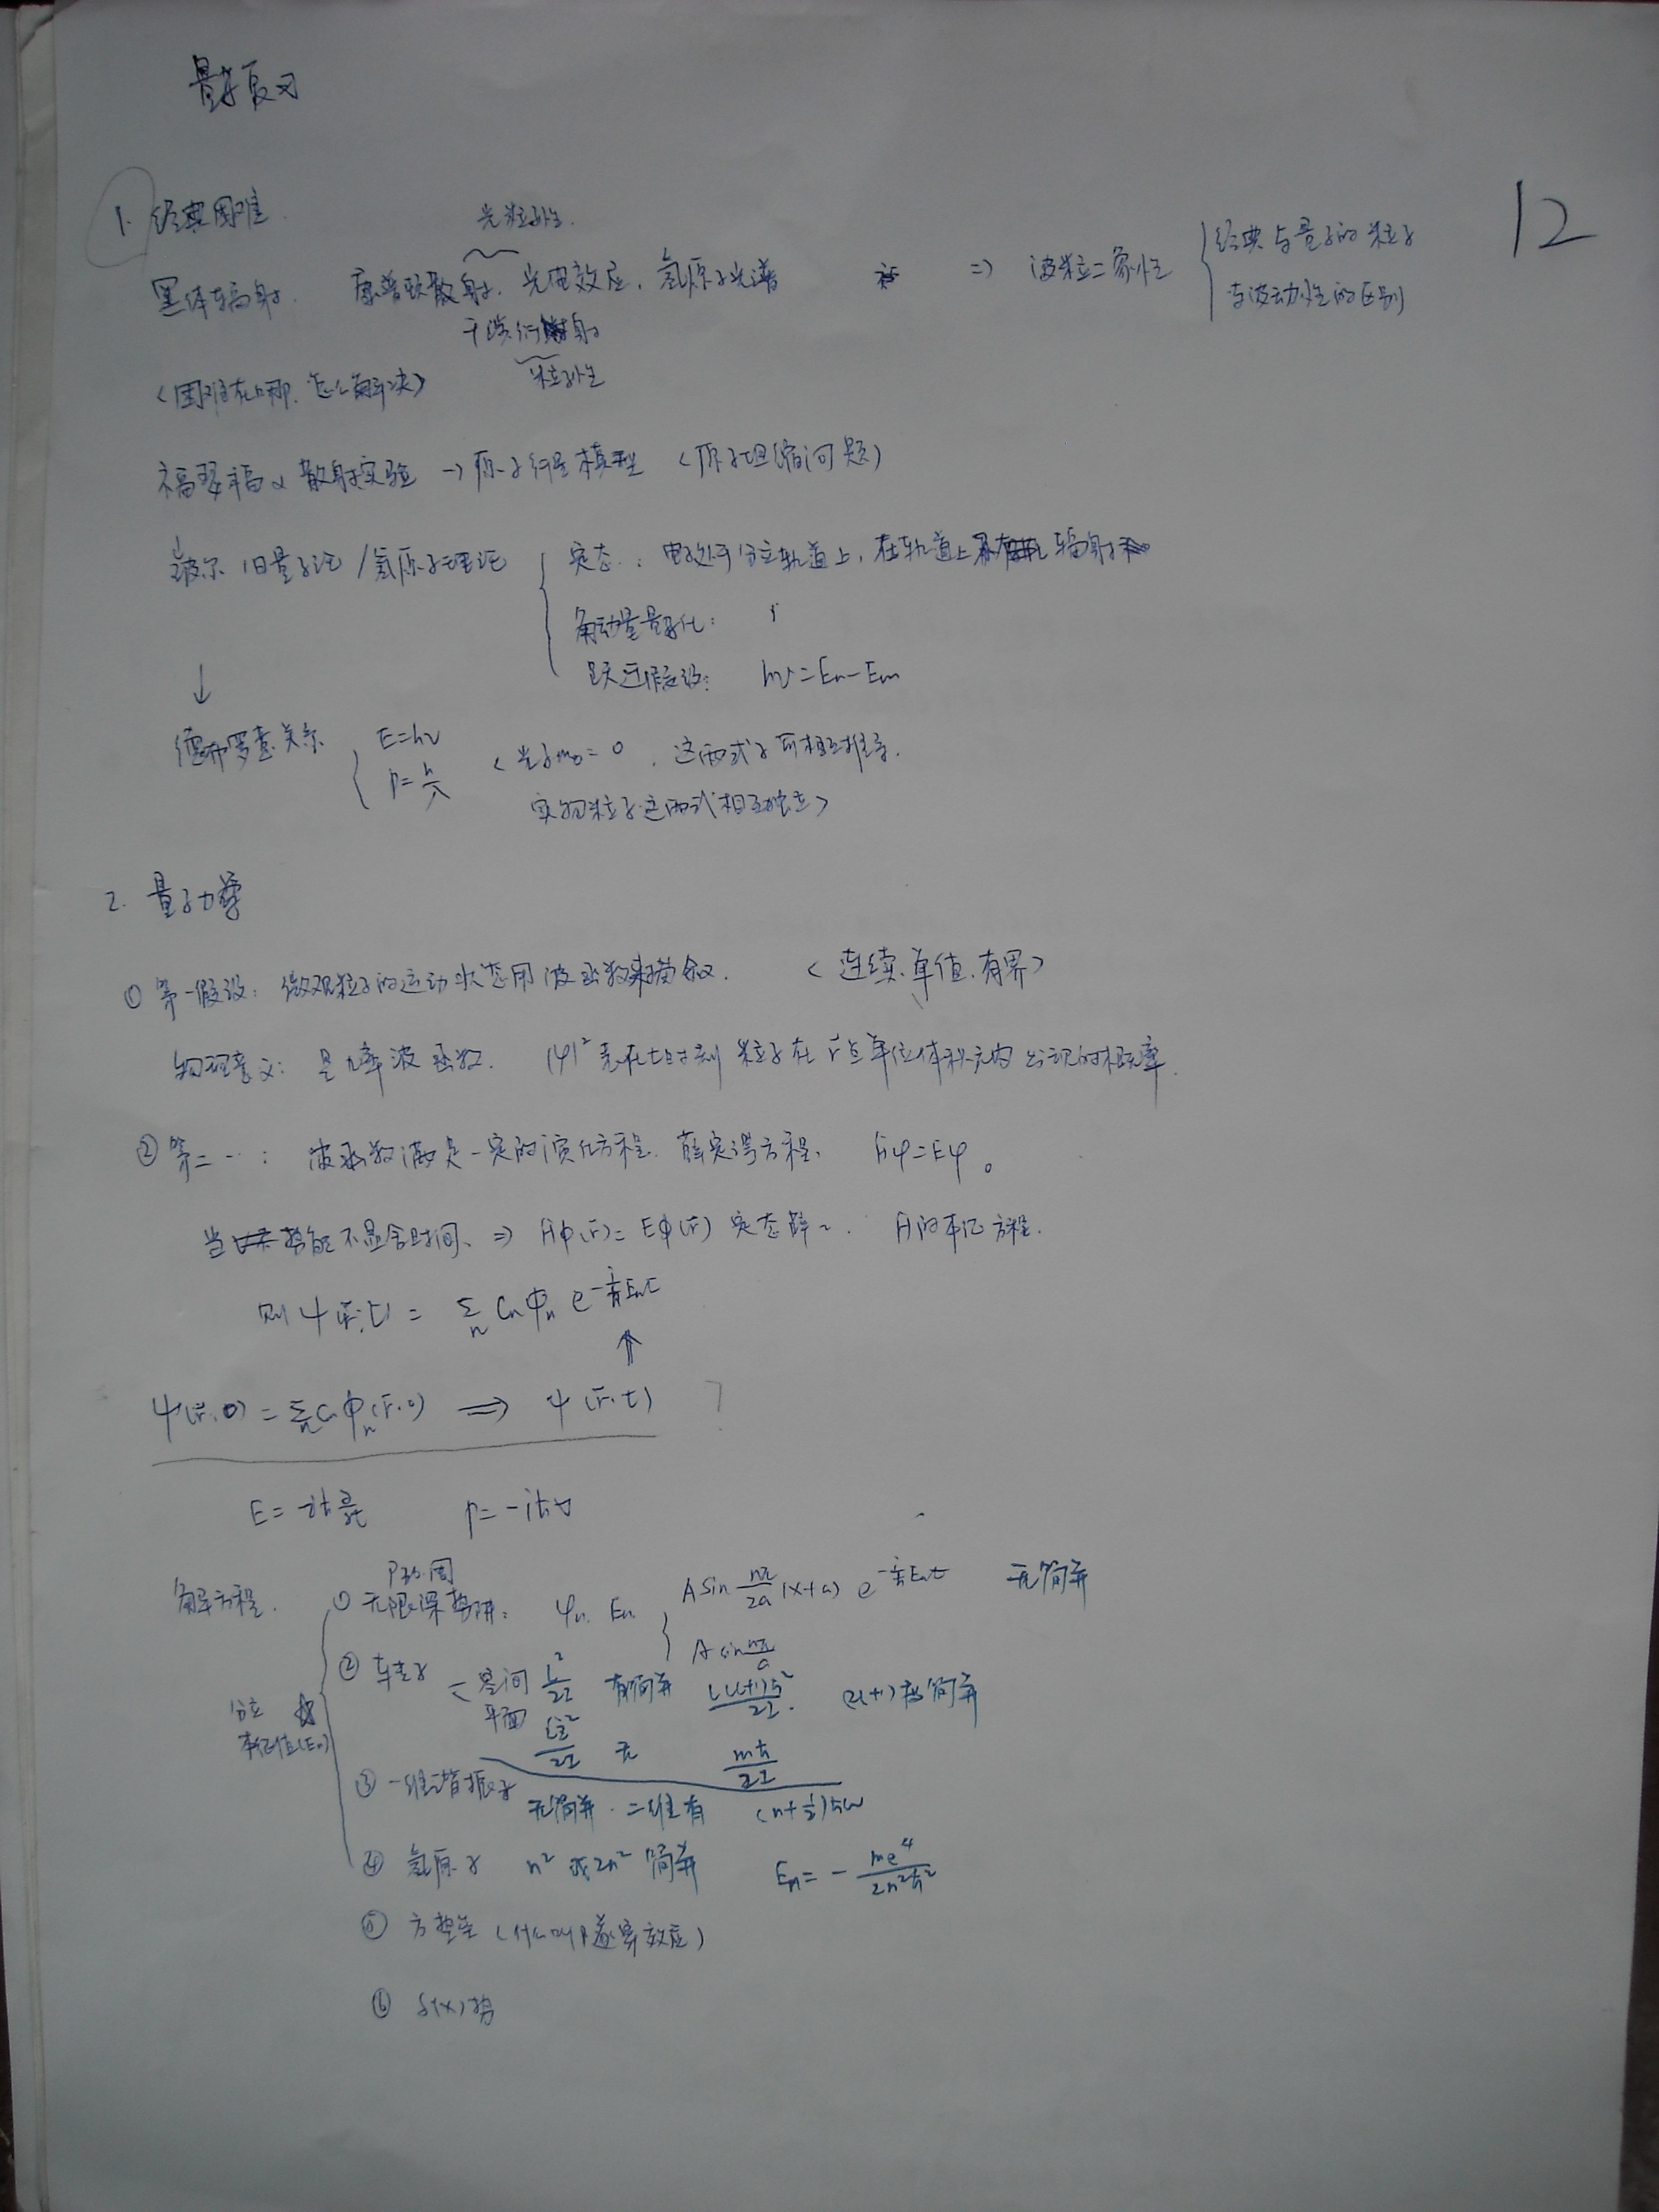 量子复习
12
1. 经典困难.
光粒子性.
黑体辐射. 康普顿散射. 光电效应. 氢原子光谱 ⇒ 波粒二象性 { 经典与量子的粒子
与波动性的区别
干涉衍射
粒子性
<困难在哪. 怎么解决>
α 散射实验 → 原子行星模型 <原子坍缩问题>
↓
玻尔 旧量子论 / 氢原子理论 { 定态: 电子处于分立轨道上, 在轨道上 辐射
角动量量子化:
跃迁假设: hν = En - Em
↓
德布罗意关系 { E = hν
p = h/λ
<光子m₀ = 0, 这两式子可相互推导.
实物粒子这两式相互独立>
2. 量子力学
① 第一假设: 微观粒子的运动状态用波函数来描叙. <连续.单值.有界>
物理意义: 是几率波函数. |ψ|² 表示t时刻 粒子在 r̄点单位体积元内出现的概率.
② 第二…: 波函数满足一定的演化方程. 薛定谔方程. Ĥψ = Eψ。
当势能不显含时间. ⇒ Ĥφ(r̄) = Eφ(r̄) 定态薛~. Ĥ的本征方程.
则 ψ(r̄,t) = Σₙ Cₙ φₙ e^(-i/ħ Eₙt)
⇑
ψ(r̄,0) = Σₙ Cₙ φₙ(r̄,0) ⇒ ψ(r̄,t) ?
E = -iħ ∂/∂t p = -iħ∇
解方程.
① 无限深势阱: ψₙ Eₙ { A sin nπ/2a (x+a) e^(-i/ħ Eₙt) 无简并
A sin nπ/a
② 转子 < 空间 L²/2I 有简并 l(l+1)ħ²/2I. (2l+1)度简并
平面 Lz²/2I 无 mħ/2I
分立 ☆
本征值(Eₙ)
③ 一维谐振子
无简并. 二维有 (n+½)ħω
④ 氢原子 n² 或2n² 简并 Eₙ = - me⁴/2n²ħ²
⑤ 方势垒 (什么叫隧穿效应)
⑥ δ(x)势